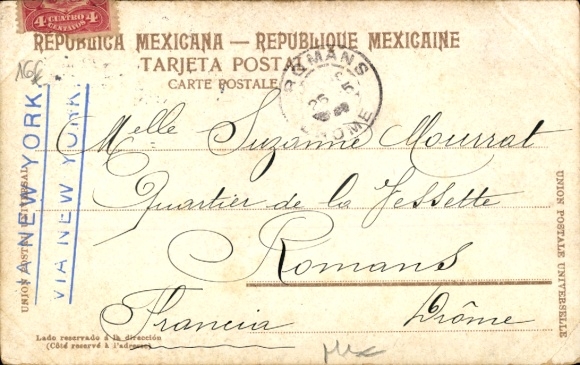 4 CUATRO 4
CENTAVOS
REPÚBLICA MEXICANA — REPUBLIQUE MEXICAINE
TARJETA POSTAL
CARTE POSTALE
ROMANS
26
DROME
VIA NEW YORK
VIA NEW YORK
Melle Suzanne Mourrat
Quartier de la
Romans
Francia Drôme
UNION POSTAL UNIVERSAL
UNION POSTALE UNIVERSELLE
Lado reservado á la dirección
(Côté reservé à l'adresse)